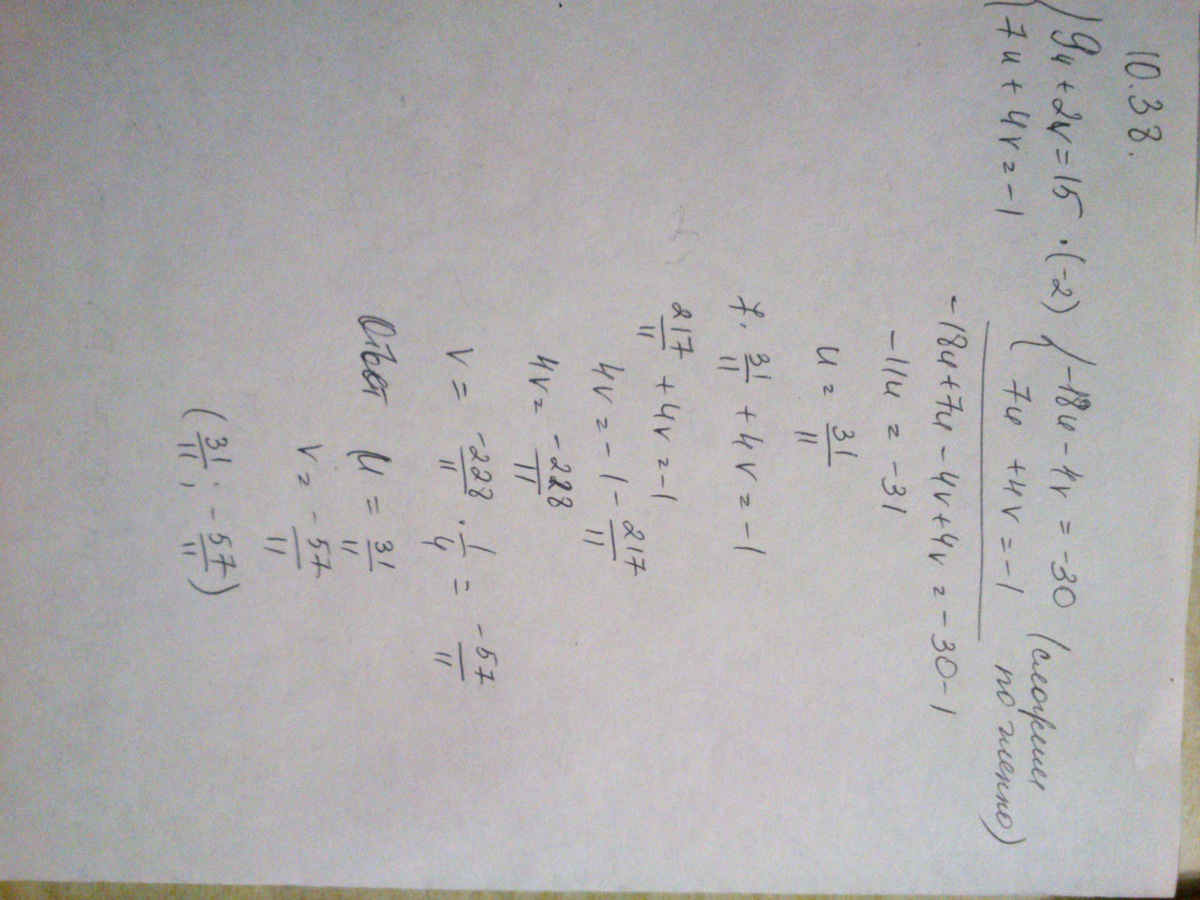 10.38.
{ 9u + 2v = 15 · (-2) { -18u - 4v = -30 (сложим
{ 7u + 4v = -1 { 7u + 4v = -1 почленно)
-18u + 7u - 4v + 4v = -30 - 1
-11u = -31
u = 31/11
7 · 31/11 + 4v = -1
217/11 + 4v = -1
4v = -1 - 217/11
4v = -228/11
v = -228/11 · 1/4 = -57/11
Ответ u = 31/11
v = -57/11
(31/11; -57/11)